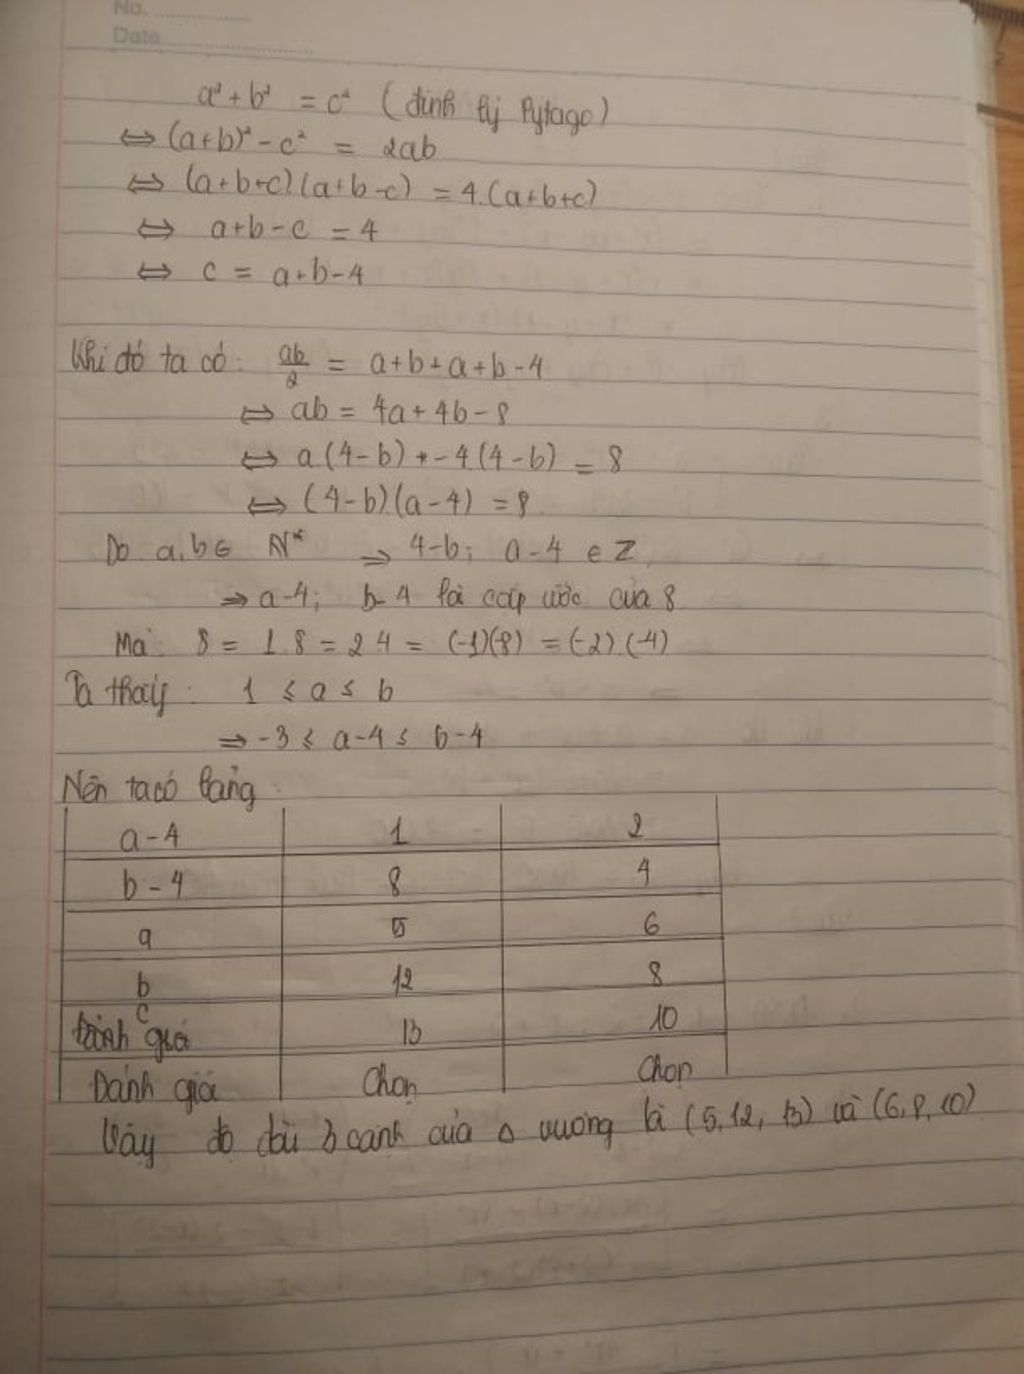 No.
Date
a² + b² = c² (định lý Pytago)
⇔ (a+b)² - c² = 2ab
⇔ (a+b+c)(a+b-c) = 4.(a+b+c)
⇔ a+b-c = 4
⇔ c = a+b-4
Khi đó ta có: ab/2 = a+b+a+b-4
⇔ ab = 4a+4b-8
⇔ a(4-b) + -4(4-b) = 8
⇔ (4-b)(a-4) = 8
Do a,b ∈ N* ⇒ 4-b; a-4 ∈ Z
⇒ a-4; b-4 là cặp ước của 8
Mà: 8 = 1.8 = 2.4 = (-1)(8) = (-2).(-4)
Ta thấy: 1 ≤ a ≤ b
⇒ -3 ≤ a-4 ≤ b-4
Nên ta có bảng:
a-4 1 2
b-4 8 4
a 5 6
b 12 8
c 13 10
Đánh giá Chọn Chọn
Vậy độ dài 3 cạnh của Δ vuông là (5,12,13) và (6,8,10)